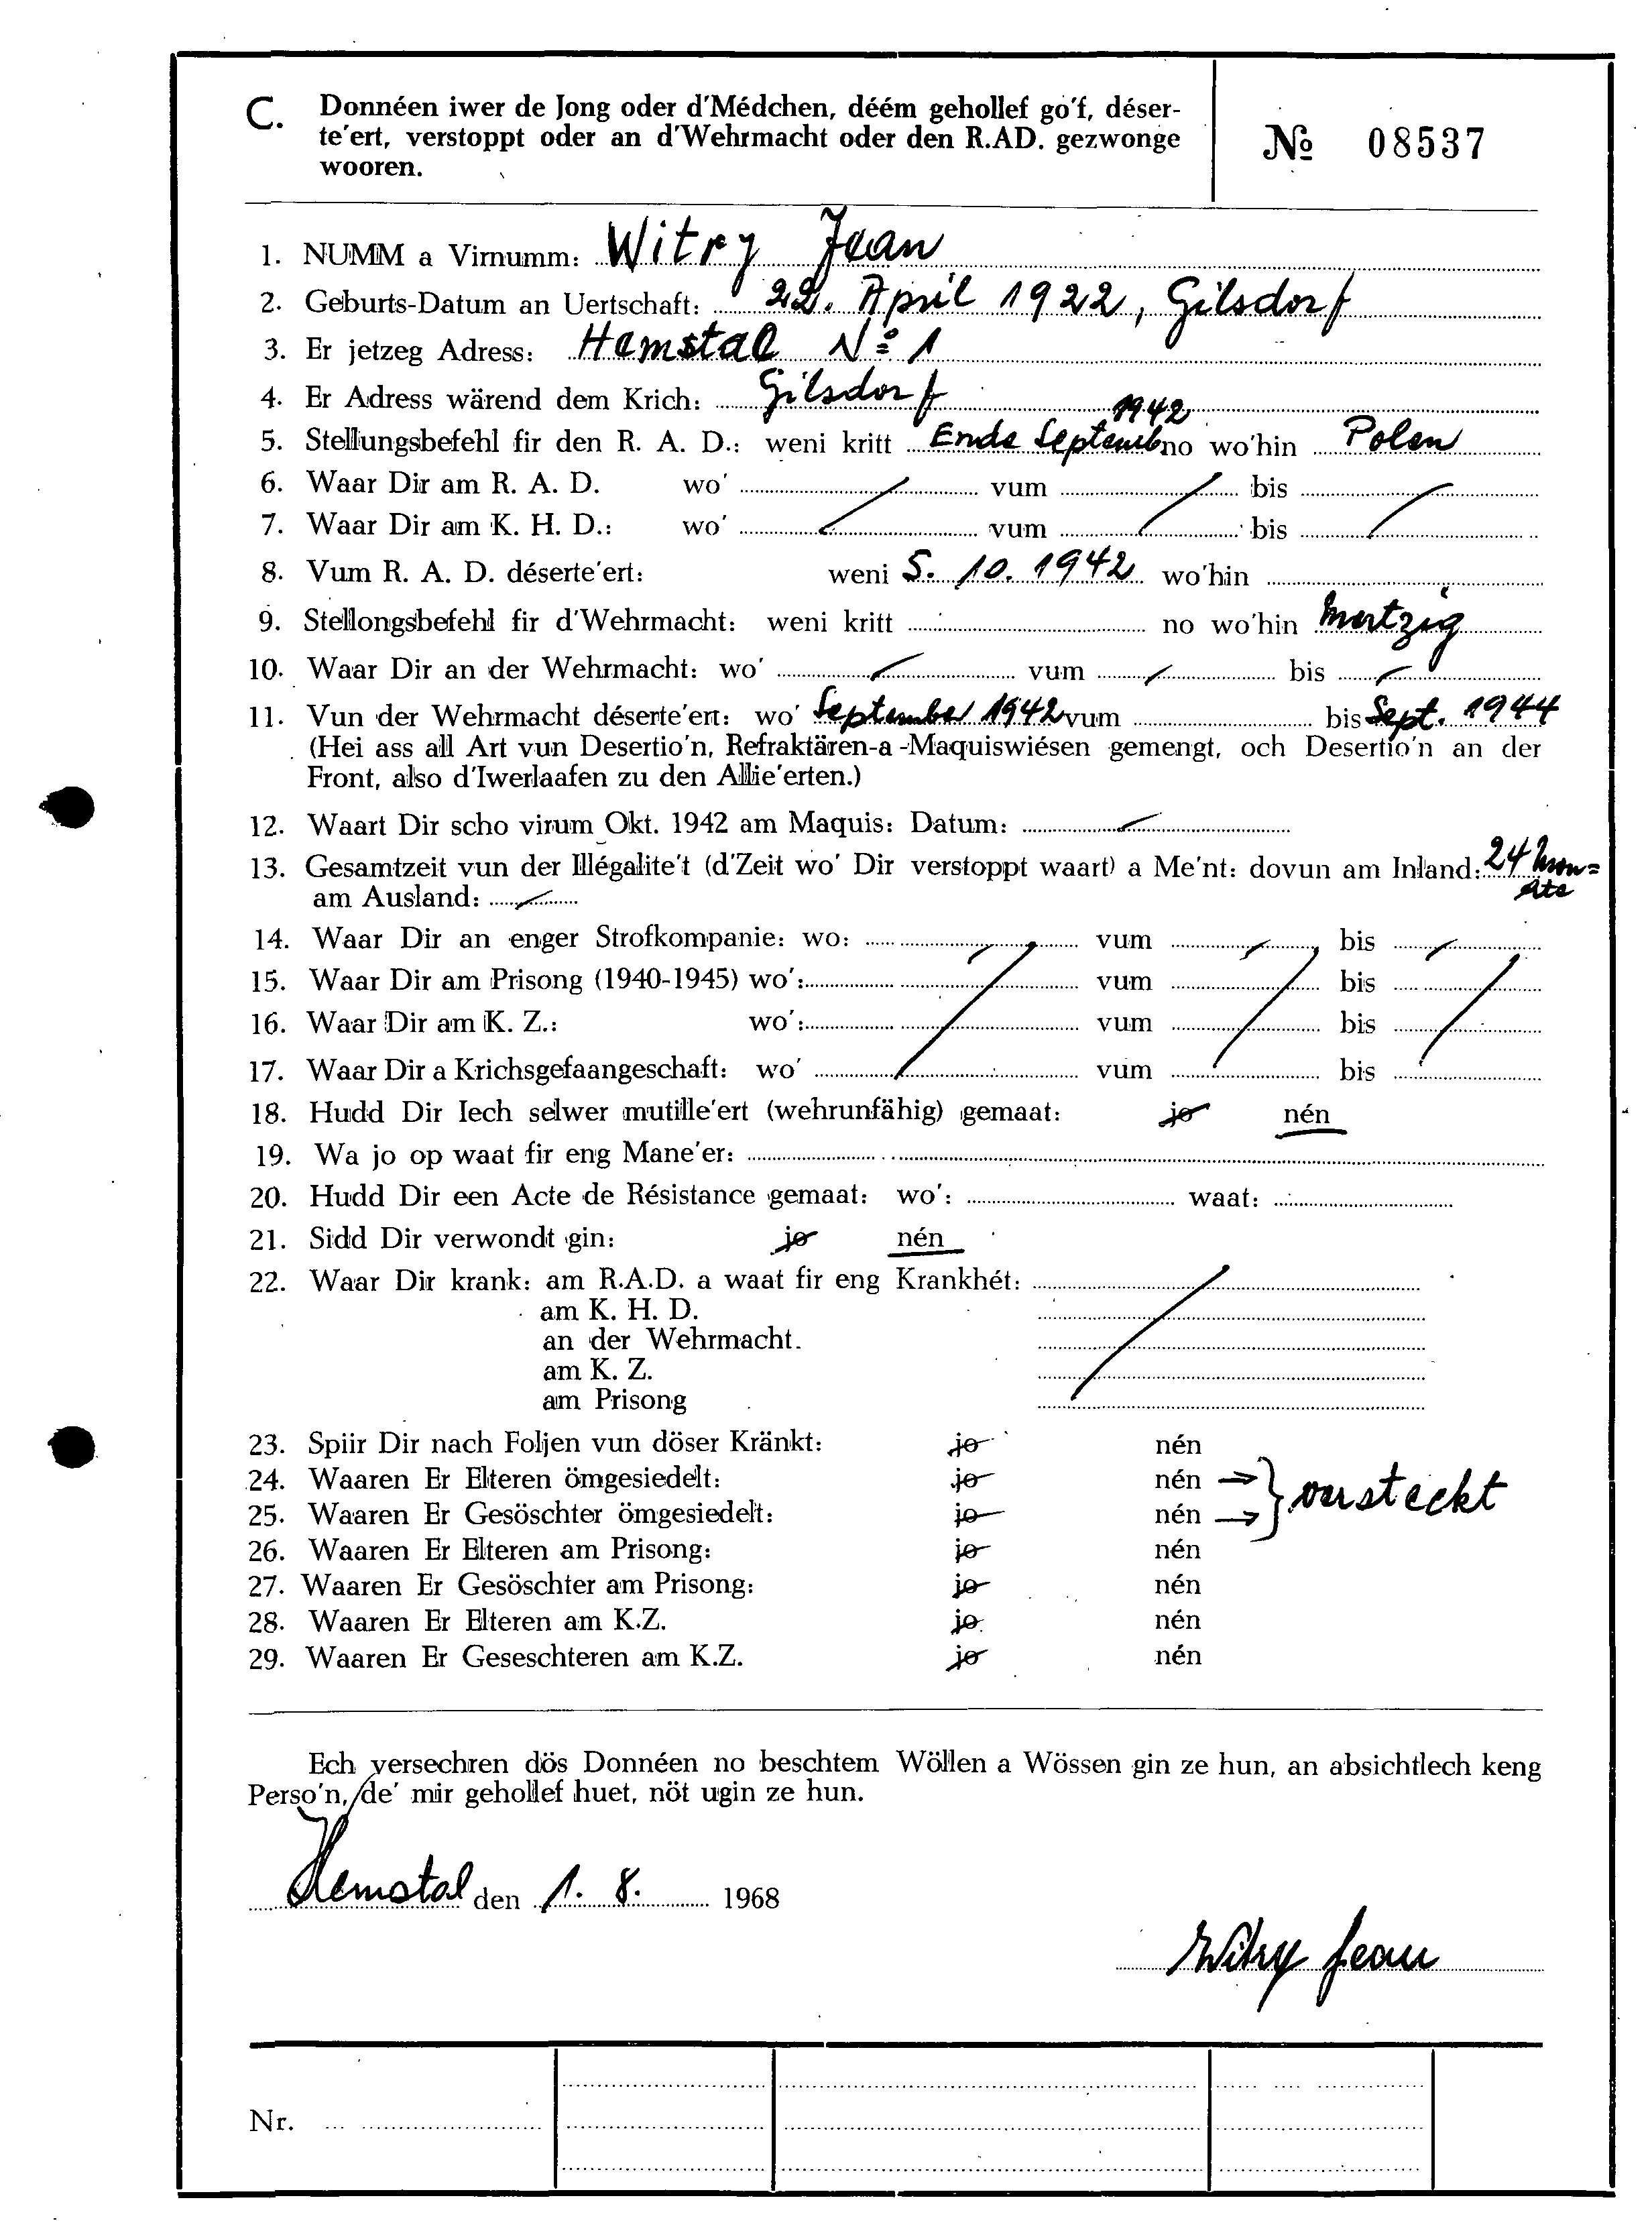 C. Donnéen iwer de Jong oder d'Médchen, déém gehollef go'f, déser-
te'ert, verstoppt oder an d'Wehrmacht oder den R.AD. gezwonge
wooren.
№ 08537
1. NUMM a Virnumm: Witry Jean
2. Geburts-Datum an Uertschaft: 22. April 1922, Gilsdorf
3. Er jetzeg Adress: Hemstal No 1
4. Er Adress wärend dem Krich: Gilsdorf
1942
5. Stellungsbefehl fir den R. A. D.: weni kritt Ende Septemb no wo'hin Polen
6. Waar Dir am R. A. D. wo' vum bis
7. Waar Dir am K. H. D.: wo' vum bis
8. Vum R. A. D. déserte'ert: weni 5. 10. 1942 wo'hin
9. Stellongsbefehl fir d'Wehrmacht: weni kritt no wo'hin Mertzig
10. Waar Dir an der Wehrmacht: wo' vum bis
11. Vun der Wehrmacht déserte'ert: wo' September 1942 vum bis Sept. 1944
(Hei ass all Art vun Desertio'n, Refraktären-a-Maquiswiésen gemengt, och Desertio'n an der
Front, also d'Iwerlaafen zu den Allie'erten.)
12. Waart Dir scho virum Okt. 1942 am Maquis: Datum:
13. Gesamtzeit vun der Illégalite't (d'Zeit wo' Dir verstoppt waart) a Me'nt: dovun am Inland: 24 Mon=
am Ausland: ate
14. Waar Dir an enger Strofkompanie: wo: vum bis
15. Waar Dir am Prisong (1940-1945) wo': vum bis
16. Waar Dir am K. Z.: wo': vum bis
17. Waar Dir a Krichsgefaangeschaft: wo' vum bis
18. Hudd Dir Iech selwer mutille'ert (wehrunfähig) gemaat: jo nén
19. Wa jo op waat fir eng Mane'er:
20. Hudd Dir een Acte de Résistance gemaat: wo': waat:
21. Sidd Dir verwondt gin: jo nén
22. Waar Dir krank: am R.A.D. a waat fir eng Krankhét:
am K. H. D.
an der Wehrmacht.
am K. Z.
am Prisong
23. Spiir Dir nach Foljen vun döser Kränkt: jo nén
24. Waaren Er Elteren ömgesiedelt: jo nén → } versteckt
25. Waaren Er Gesöschter ömgesiedelt: jo nén →
26. Waaren Er Elteren am Prisong: jo nén
27. Waaren Er Gesöschter am Prisong: jo nén
28. Waaren Er Elteren am K.Z. jo nén
29. Waaren Er Geseschteren am K.Z. jo nén
Ech versechren dös Donnéen no beschtem Wöllen a Wössen gin ze hun, an absichtlech keng
Perso'n, de' mir gehollef huet, nöt ugin ze hun.
Hemstal den 1. 8. 1968
Witry Jean
Nr.